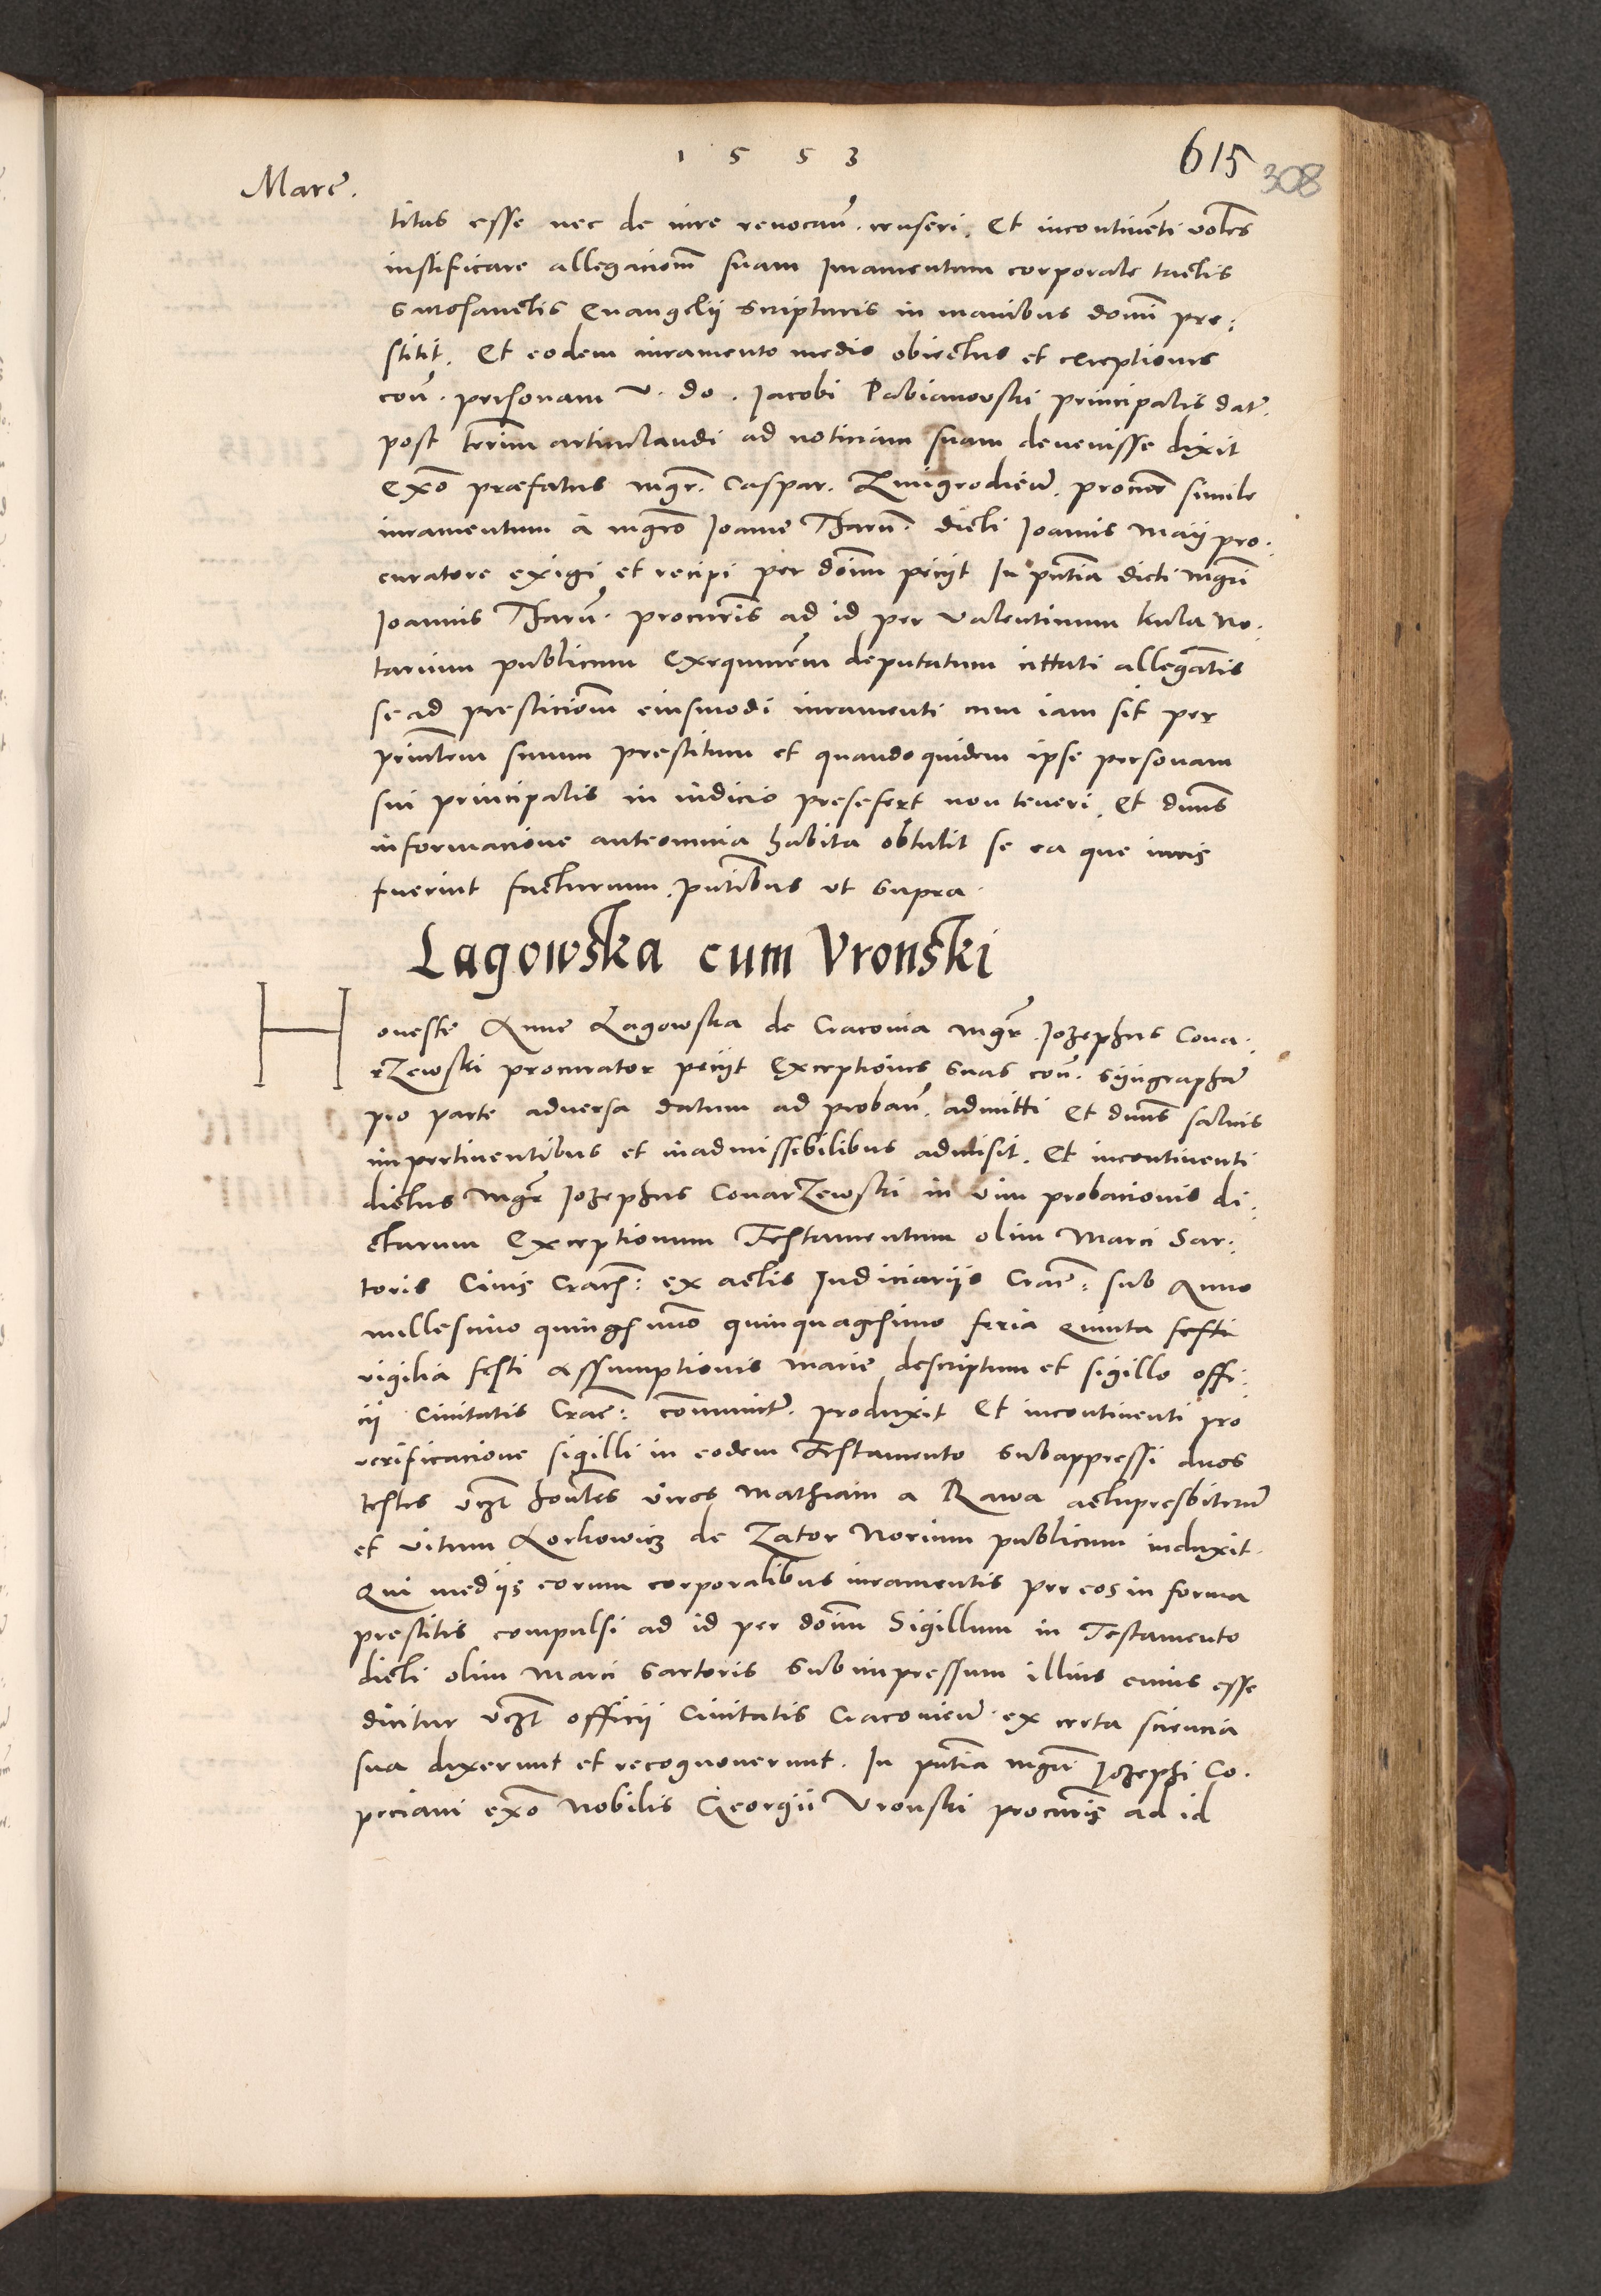 1 5 5 3
615
308
Marẽ.
titas esse nec de iure reuocari censeri. Et incontinẽti volẽs
iustificare allegacionẽ suam Iuramentum corporale tactis
sacrosanctis Euangelii scripturis in manibus domĩ pre:
stitit. Et eodem iuramento medio obiectus et exceptiones
coñ. personam v. do. Iacobi Pabianowski principalis dat.
post termĩ articulandi ad noticiam suam deuenisse dixit
Exõ præfatus mgr̃. Caspar. Zmigrodieñ. procurr̃ simile
iuramentum à mgrõ Ioanne Tharñ. dicti Ioannis Maij pro.
curatore exigi et recipi per domĩ peciit In pñtia dicti mgrĩ
Ioannis Tharñ. procuris ad id per Valentinum Kula No.
tarium publicum Exequutorẽm deputatum cittati allegãtis
se ad presticionẽ eiusmodi iuramenti cum iam sit per
principalem suum prestitum et quandoquidem ipse personam
sui principalis in iudicio presefert non teneri. Et dnus
informacione anteomnia habita obtulit se ea que iuris
fuerint facturum. pñtibus ut supra.
Lagowska cum Vronski
Honeste Anne Lagowska de Cracouia mgr̃. Iozephus Cona.
rzewski procurator peciit Exceptiones suas coñ. syngraphã
pro parte aduersa datum ad probañ. admitti Et dnus saluis
impertinentibus et inadmissebilibus admisit. Et incontinenti
dictus mgr̃ Iozephus Conarzewski in vim probacionis di:
ctarum Exceptionum Testamentum olim Marci Sar.
toris Ciuis Crac̃: ex actis Iudiciariis Crac̃: sub Anno
millesimo quingesimo quinquagesimo feria quinta festi
vigilia festi Assumptionis Marie descriptum et sigillo offi:
cii Ciuitatis Crac̃: communit̃. produxit Et incontinenti pro
verificacione sigilli in eodem Testamento subappressi duos
testes vczt honẽs viros Mathiam a Rawa actupresbiterũ
et Vitum Lorkowicz de Zator Norium publicum induxit.
Qui mediis eorum corporalibus iuramentis per eos in forma
prestitis compulsi ad id per domĩ Sigillum in Testamento
dicti olim Marci Sartoris subimpressum illius cuius esse
dicitur vczt officii Ciuitatis Cracouieñ. ex certa sciencia
sua dixerunt et recognouerunt. In pñtia mgrĩ Iozephi Co.
peciani exõ Nobilis Georgii Vronski procuris ad id